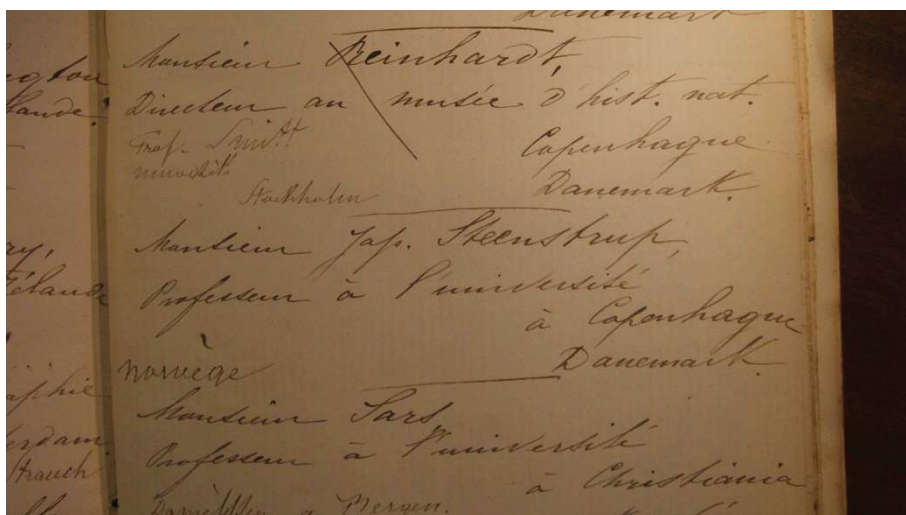 Danemark
Monsieur Reinhardt,
Directeur au musée d'hist. nat.
Copenhague
Danemark.
Prof. Smitt
Stockholm
Monsieur Jap. Steenstrup,
Professeur à l'université
à Copenhague
Danemark.
Norvège
Monsieur Sars
Professeur à l'université
à Christiania
à Bergen.